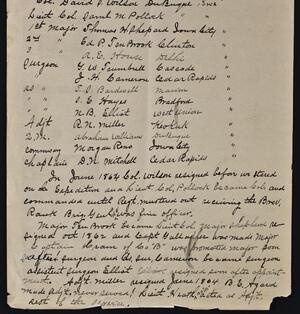 Col. David B Wilson Dubuque Iowa
Lieut Col. Saml M Pollock "
1st Major Thomas H Shepard Iowa City "
2nd " Ed P. TenBrook Clinton
3 " A. E. House Delhi
Surgeon G. W Trumbull Cascade
" J. H. Cameron Cedar Rapids
as " T. S. Bardwell Marion
" S E Hayes Bradford
" N. B. Elliot West Union
Adjt R. N. Miller Keokuk
Q. M. Abraham Williams Dubuque
Commissary Morgan Reno Iowa City
Chaplain D. N. Mitchell Cedar Rapids
In June 1864 Col. Wilson resigned before we started
on an Expedition and Lieut Col. Pollock became Col. and
commanded until Regt. mustered out receiving the Brev.
Rank Brig Genl was fine officer.
Major TenBrook became Lieut Col. Major Shepherd re-
signed out 1864 and Capt Galligher was made Major
Captain Crane of Co "B" was promoted major soon
after surgeon and as Sur. Cameron became surgeon
assistent surgeon Elliot resigned soon after appoint-
ment. Adjt. Miller resigned June 1864 B. E. Agard
made Adjt, never served. Lieut Heath, acted as Adjt.
Rest of the service.